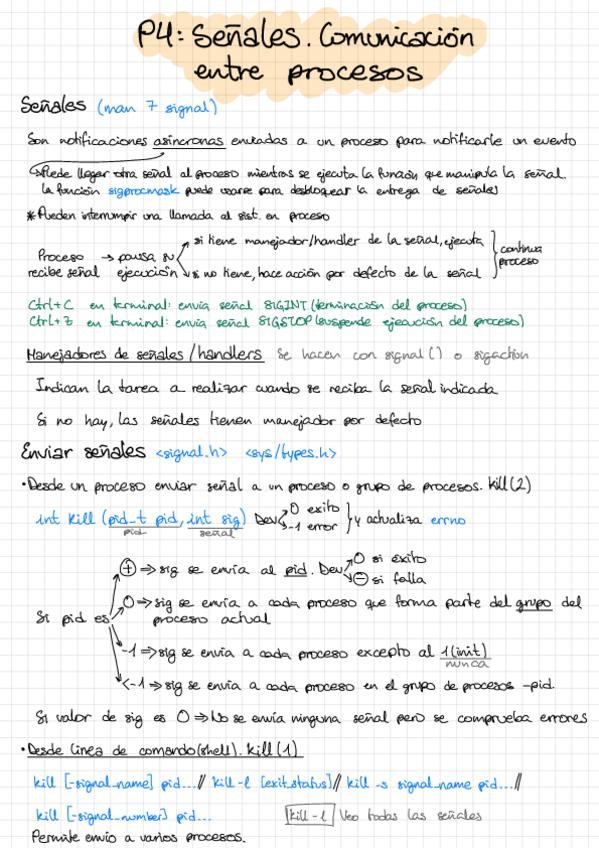 P4: Señales. Comunicación
entre procesos
Señales (man 7 signal)
Son notificaciones asíncronas enviadas a un proceso para notificarle un evento
Puede llegar otra señal al proceso mientras se ejecuta la función que manipula la señal.
la función sigprocmask puede usarse para desbloquear la entrega de señales
* Pueden interrumpir una llamada al sist. en proceso
si tiene manejador/handler de la señal, ejecuta
Proceso → pausa su
continua
proceso
recibe señal ejecución
si no tiene, hace acción por defecto de la señal
Ctrl+C en terminal: envía señal SIGINT (terminación del proceso)
Ctrl+Z en terminal: envía señal SIGSTOP (suspende ejecución del proceso)
Manejadores de señales/handlers Se hacen con signal() o sigaction
Indican la tarea a realizar cuando se reciba la señal indicada
Si no hay, las señales tienen manejador por defecto
Enviar señales <signal.h> <sys/types.h>
• Desde un proceso enviar señal a un proceso o grupo de procesos. kill(2)
int kill (pid_t pid, int sig) Dev 0 exito
-1 error } y actualiza errno
pid señal
+ ⇒ sig se envía al pid. Dev 0 si éxito
- si falla
Si pid es
0 ⇒ sig se envía a cada proceso que forma parte del grupo del
proceso actual
-1 ⇒ sig se envía a cada proceso excepto al 1 (init)
nunca
<-1 ⇒ sig se envía a cada proceso en el grupo de procesos -pid.
Si valor de sig es 0 ⇒ No se envía ninguna señal pero se comprueba errores
• Desde línea de comando (shell). Kill(1)
kill [-signal_name] pid...// kill -l [exit_status]// kill -s signal_name pid...//
kill [-signal_number] pid... kill -l Veo todas las señales
Permite envío a varios procesos.